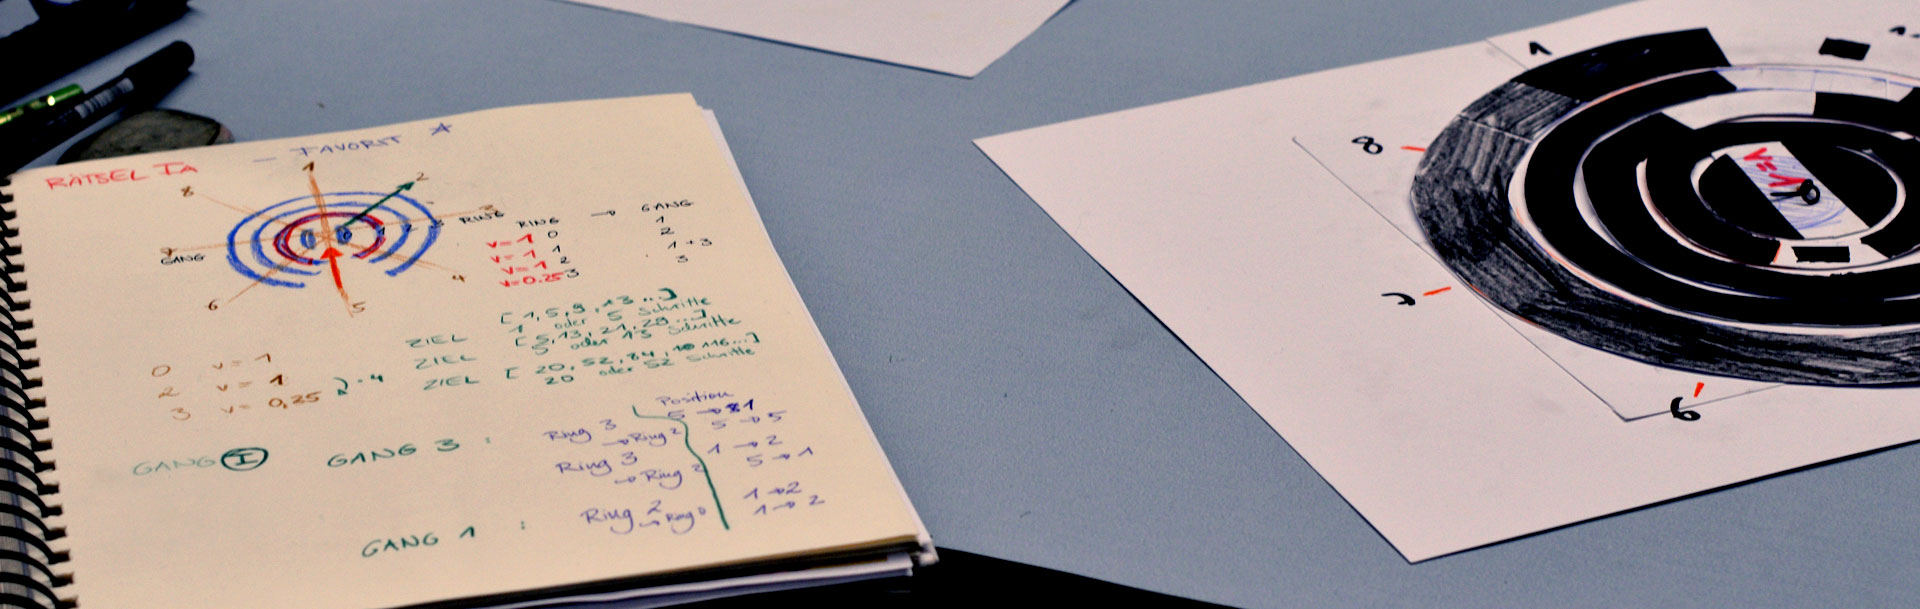 RÄTSEL Ia – FAVORIT
1
2
8
3
RING
GANG
4
6
5
RING → GANG
v=1 0 1
v=1 1 2
v=1 2 1+3
v=0.25 3 3
ZIEL [1, 5, 9, 13...]
1 oder 5 Schritte
ZIEL [5, 13, 21, 29...]
5 oder 13 Schritte
ZIEL [20, 52, 84, 116...]
20 oder 52 Schritte
0 v=1
2 v=1
3 v=0,25
·4
GANG I GANG 3 :
Position
Ring 3 → Ring 2
5 → 5
Ring 3 → Ring 2
1 → 2
5 → 1
GANG 1 :
Ring 2 → Ring 0
1 → 2
1 → 2
1
8
7
6
v=1
0